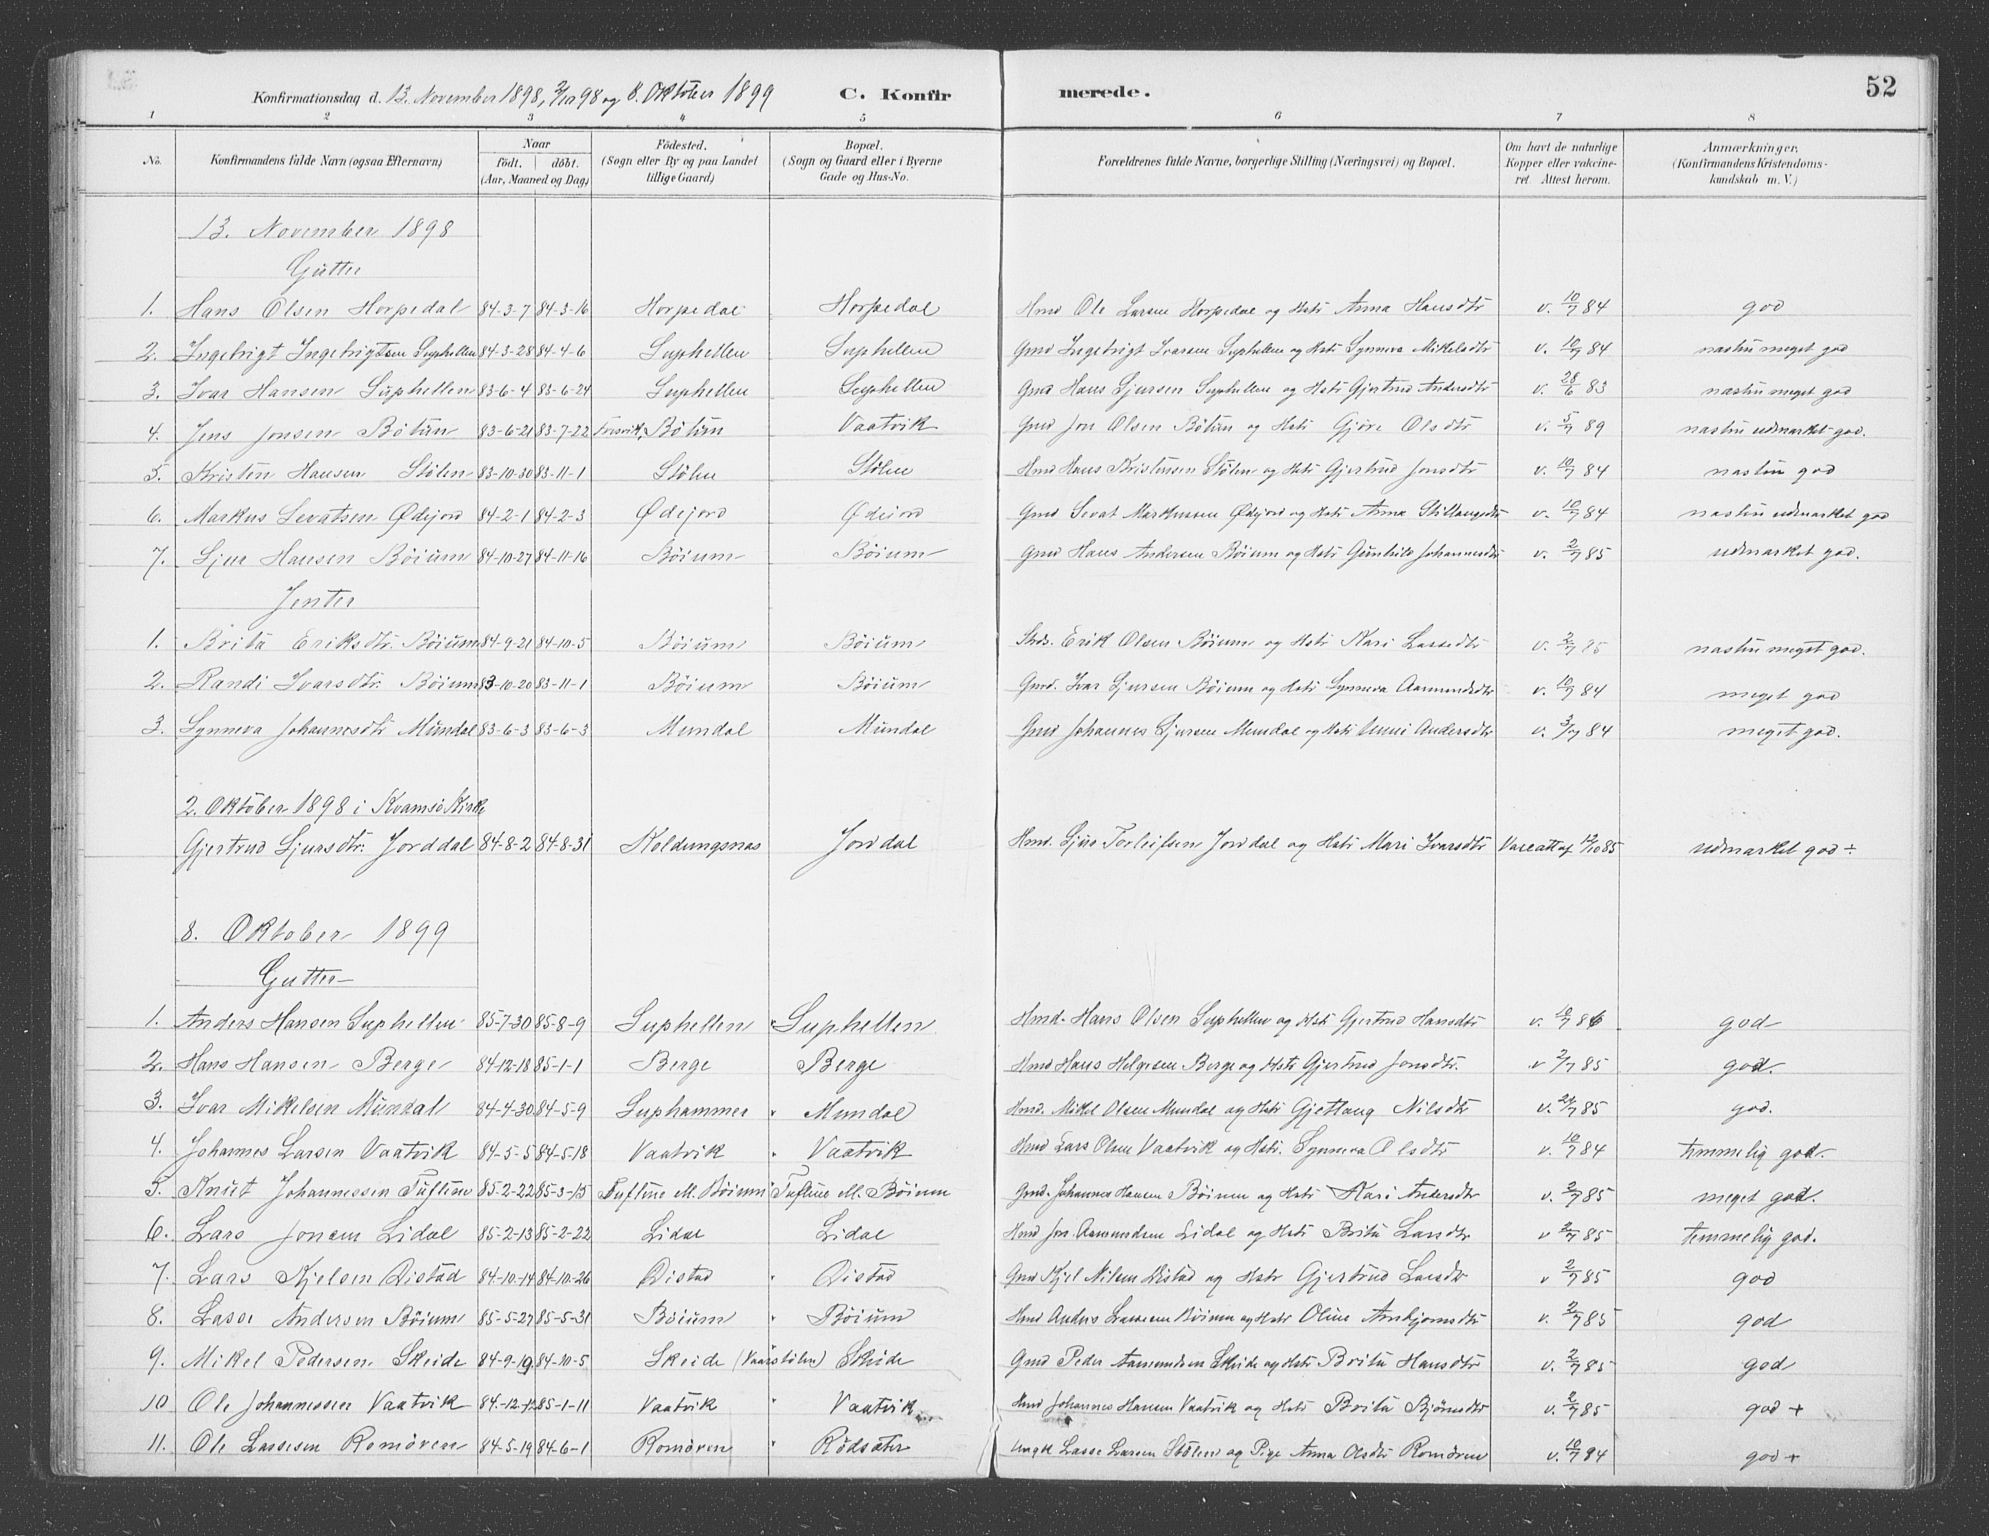 52
Konfirmationsdag d. 13. November 1898, 2/10 98 og 8. Oktober 1899 C. Konfirmerede.
1 2 3 4 5 6 7 8
No. Konfirmandens fulde Navn (ogsaa Efternavn) Naar født. døbt. (Aar, Maaned og Dag) Fødested. (Sogn eller By og paa Landet tillige Gaard) Bopæl. (Sogn og Gaard eller i Byerne Gade og Hus-No. Forældrenes fulde Navne, borgerlige Stilling (Næringsvei) og Bopæl. Om havt de naturlige Kopper eller vakcineret Attest herom. Anmærkninger. (Konfirmandens Kristendomskundskab m. V.)
13. November 1898
Gutter
1. Hans Olsen Horpedal 84-3-7 84-3-16 Horpedal Horpedal Hmd Ole Larsen Horpedal og Hstr Anna Hansdtr v. 10/7 84 god
2. Ingebrigt Ingebrigtsen Suphellen 84-3-28 84-4-6 Suphellen Suphellen Gmd Ingebrigt Ivarsen Suphellen og Hstr Synneva Mikelsdtr v. 10/7 84 næsten meget god
3. Ivar Hansen Suphellen 83-6-4 83-6-24 Suphellen Suphellen Gmd Hans Sjursen Suphellen og Hstr Gjertrud Andersdtr v. 28/6 83 næsten meget god
4. Jens Jonsen Bötun 83-6-21 83-7-22 Fresvik, Bötun Vaatvik Gmd Jon Olsen Bötun og Hstr Gjöre Olsdtr v. 5/7 89 næsten udmærket god.
5. Kristen Hansen Stölen 83-10-30 83-11-1 Stölen Stölen Hmd Hans Kristensen Stölen og Hstr Gjertrud Jonsdtr v. 10/7 84 næsten god
6. Markus Sevatsen Ødejord 84-2-1 84-2-3 Ødejord Ødejord Gmd Sevat Markussen Ødejord og Hstr Anna Stillaugsdtr v. 10/7 84 næsten udmærket god
7. Sjur Hansen Böium 84-10-27 84-11-16 Böium Böium Gmd Hans Andersen Böium og Hstr Gunhild Johannesdtr v. 2/7 85 udmærket god.
Jenter
1. Brita Eriksdtr. Böium 84-9-21 84-10-5 Böium Böium Erik Olsen Böium og Hstr Kari Lassedtr v. 2/7 85 næsten meget god.
2. Randi Ivarsdtr. Böium 83-10-20 83-11-1 Böium Böium Gmd. Ivar Sjursen Böium og Hstr Synneva Aamundsdtr v. 10/7 84 meget god
3. Synneva Johannesdtr Mundal 83-6-3 83-6-3 Mundal Mundal Gmd Johannes Sjursen Mundal og Hstr Unni Andersdtr v. 3/7 84 meget god.
2. Oktober 1898 i Kvamsö Kirke
Gjertrud Sjursdtr. Jorddal 84-8-2 84-8-31 Koldungsnæs Jordal Hmd. Sjur Torleifsen Jordal og Hstr Mari Ivarsdtr Vacc att af 12/10 85 udmærket god ÷
8. Oktober 1899
Gutter
1. Anders Hansen Suphellen 85-7-30 85-8-9 Suphellen " Suphellen Hmd. Hans Olsen Suphellen og Hstr Gjertrud Hansdtr v. 10/7 86 god
2. Hans Hansen Berge 84-12-18 85-1-1 Berge Berge Hmd Hans Helgesen Berge og Hstr Gjertrud Jonsdtr. v 2/7 85 god.
3. Ivar Mikelsen Mundal 84-4-30 84-5-9 Suphammer " Mundal Hmd. Mikel Olsen Mundal og Hstr Gjetlaug Nilsdtr v. 24/7 85 god.
4. Johannes Larsen Vaatvik 84-5-5 84-5-18 Vaatvik " Vaatvik Hmd Lars Olsen Vaatvik og Hstr. Synneva Olsdtr v. 10/7 84 temmelig god.
5. Knut Johannessen Tuftene 85-2-22 85-3-15 Tuftene M. Böium Tuftene M. Böium Gmd. Johannes Hansen Böium og Hstr Kari Andersdtr v. 2/7 85 meget god.
6. Lars Jonsen Lidal 85-2-13 85-2-22 Lidal Lidal Hmd Jon Aamundsen Lidal og Hstr Brita Larsdtr v 2/7 85 temmelig god.
7. Lars Kjelsen Distad 84-10-14 84-10-26 Distad " Distad Gmd Kjel Nilsen Distad og Hstr Gjertrud Larsdtr v 2/7 85 god
8. Lasse Andersen Böium 85-5-27 85-5-31 Böium " Böium Hmd Anders Lassesen Böium og Hstr Oline Arnbjornsdtr v. 2/7 85 god
9. Mikel Pedersen Skeide 84-9-19 84-10-5 Skeide (Vaarstölen) Skeide Gmd Peder Aamundsen Skeide og Hstr Brita Hansdtr v. 2/7 85 god
10 Ole Johannessen Vaatvik 84-12-12 85-1-11 Vaatvik " Vaatvik Hmd Johannes Hansen Vaatvik og Hstr Brita Björnsdtr v. 2/7 85 god +
11. Ole Lassesen Romören 84-5-19 84-6-1 Romören " Rödsæter Ungkl Lasse Larsen Stölen og Pige Anna Olsdtr Romören v. 10/7 84 god +